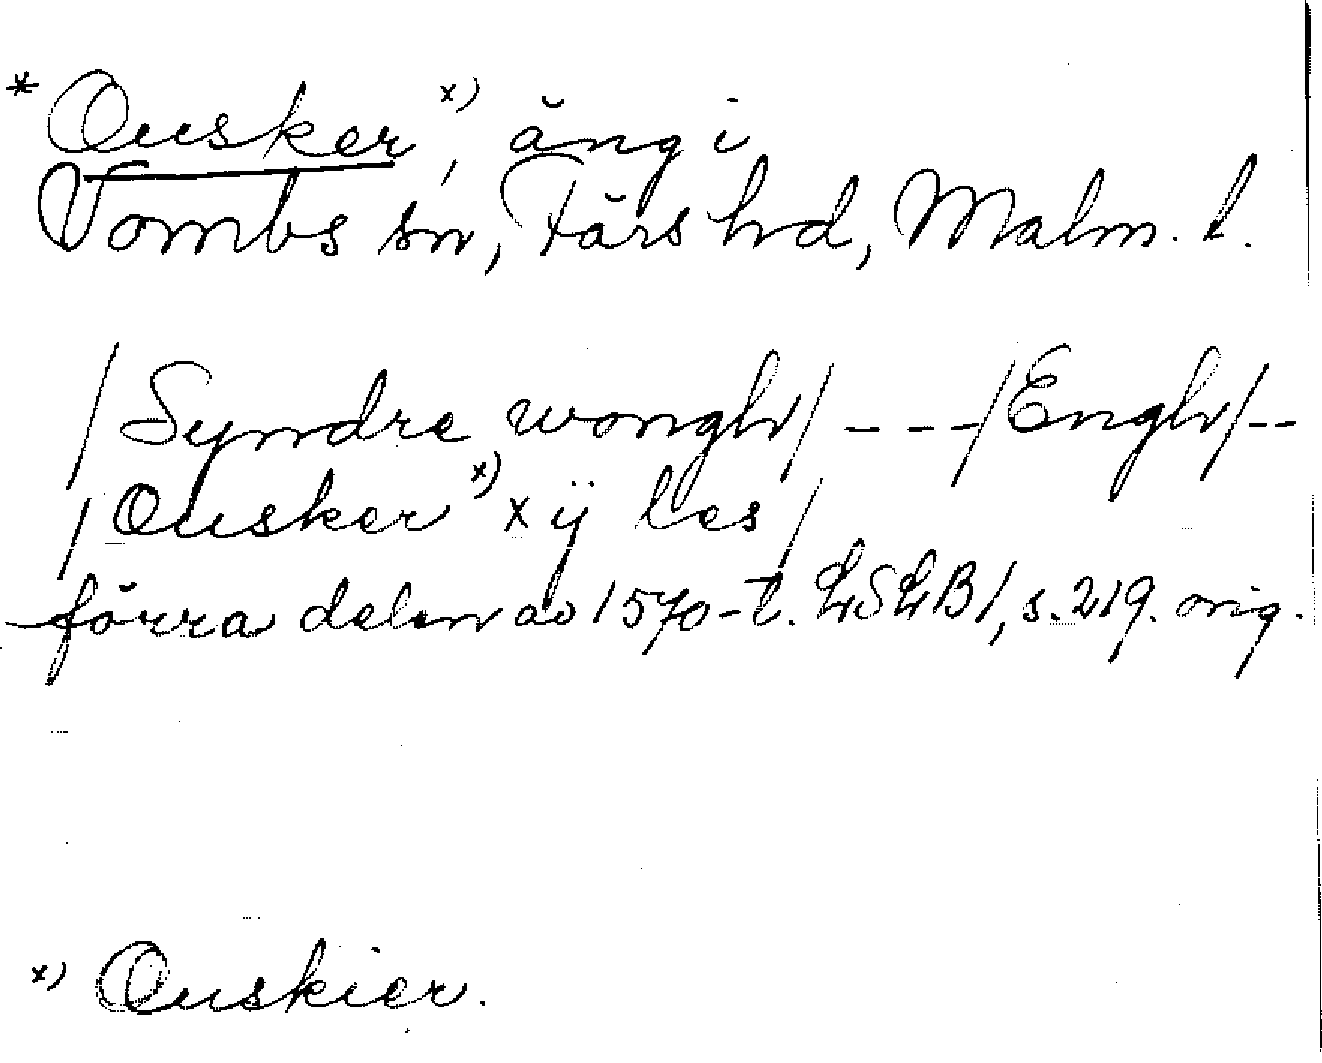 * Ousker x), äng i
Vombs sn, Färs hd, Malm. l.
/ Syndre wongh / - - - / Engh / - -
/ Ousker x) x ij les /
förra delen av 1570-t. LSLB 1, s. 219. orig.
x) Ouskier.